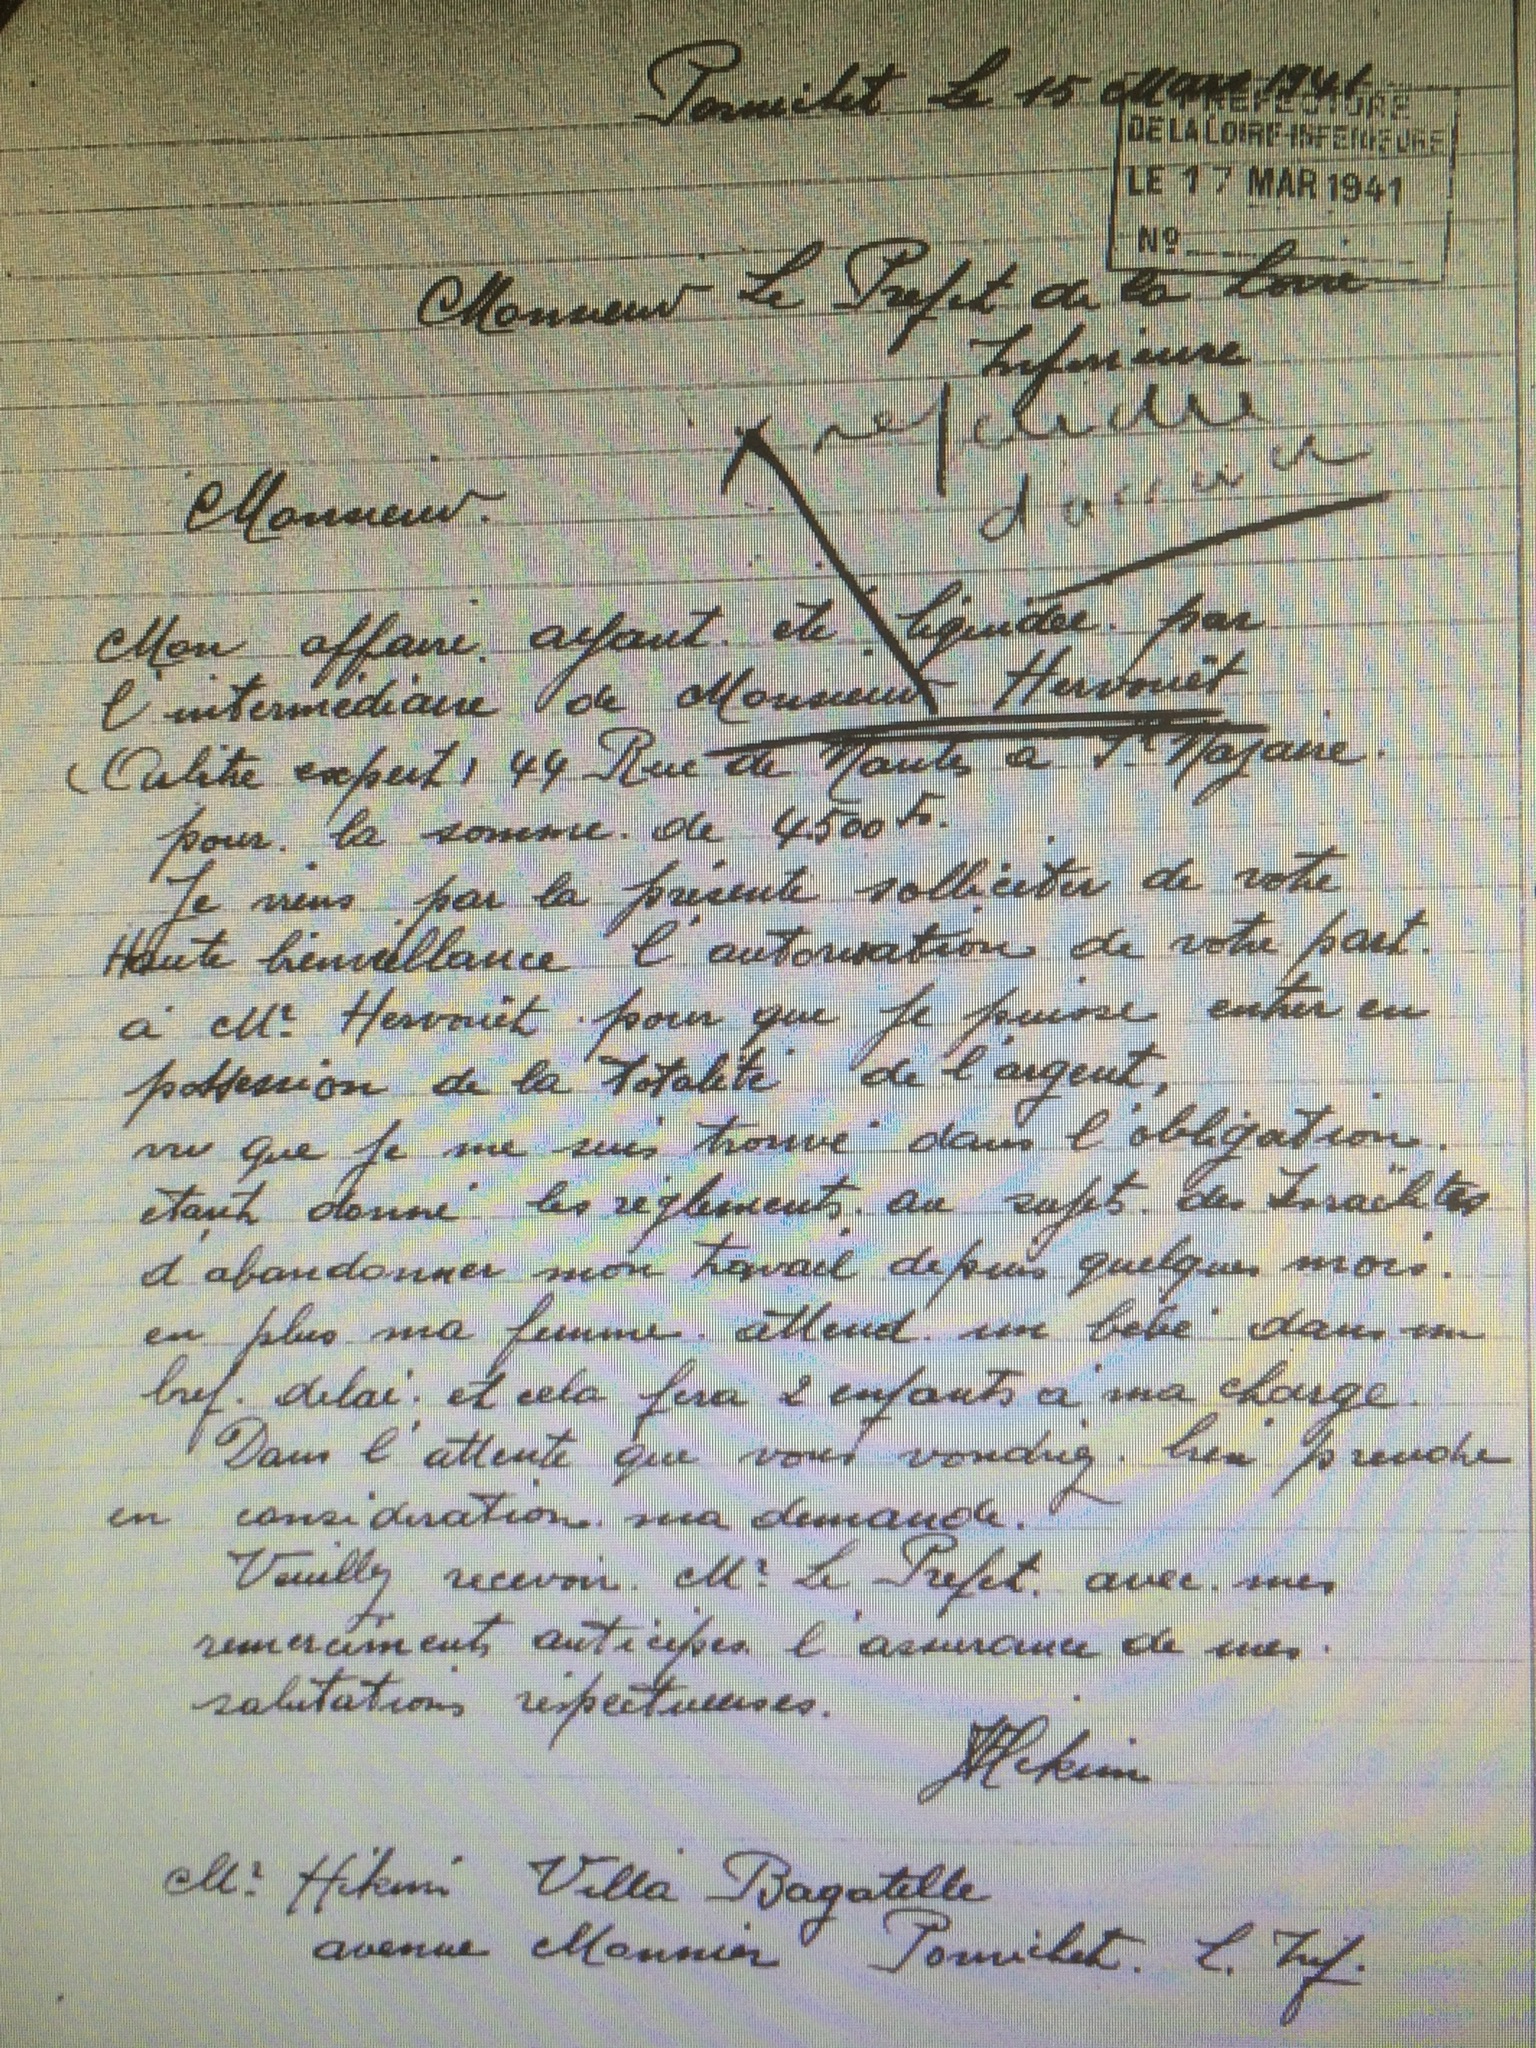 Pornichet Le 15 Mars 1941
PREFECTURE
DE LA LOIRE-INFERIEURE
LE 17 MAR 1941
Nº
Monsieur Le Prefet de la Loire
Inferieure
repondre
d'accord
Monsieur.
Mon affaire ayant eté liquidée par
l'intermédiaire de Monsieur Hervouët
(Arbitre expert) 44 Rue de Nantes a St Nazaire.
pour la somme de 4500 Fr.
Je viens par la présente solliciter de votre
Haute bienveillance l'autorisation de votre part.
à Mr Hervouët pour que je puisse entrer en
possession de la Totalité de l'argent,
vu que je me suis trouvé dans l'obligation.
étant donné les réglements au sujet des Israëlites
d'abandonner mon travail depuis quelques mois.
en plus ma femme attend un bébé dans un
bref delai. et cela fera 2 enfants à ma charge.
Dans l'attente que vous voudriez bien prendre
en consideration ma demande.
Veuillez recevoir Mr Le Prefet. avec mes
remerciments anticipés l'assurance de mes
salutations respectueuses.
Hekim
Mr Hikim Villa Bagatelle
avenue Monnier Pornichet. L. Inf.